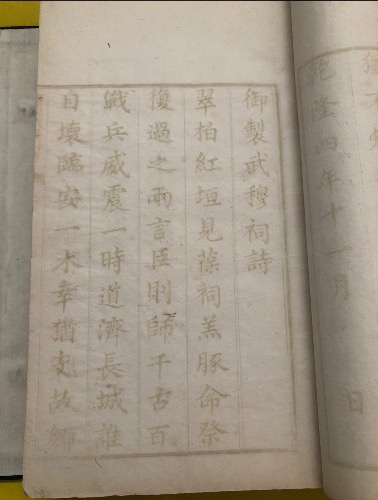 乾隆四年十一月 日
御製武穆祠詩
翠柏紅垣見葆祠羔豚命祭
復過之兩言臣則師千古百
戰兵威震一時道濟長城誰
自壞臨安一木幸猶支故鄉